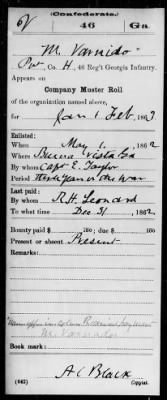 Confederate.
V 46 Ga.
M. Varnido
Pvt Co. H, 46 Reg't Georgia Infantry.
Appears on
Company Muster Roll
of the organization named above,
for Jan & Feb, 1863
Enlisted:
When May 1, 1862
Where Buena Vista Ga
By whom Capt E. Taylor
Period three years or the war
Last paid:
By whom R. H. Leonard
To what time Dec 31, 1862
Bounty paid $ 100; due $ 100
Present or absent Present
Remarks:
Book mark:
A C Black
(642) Copyist.